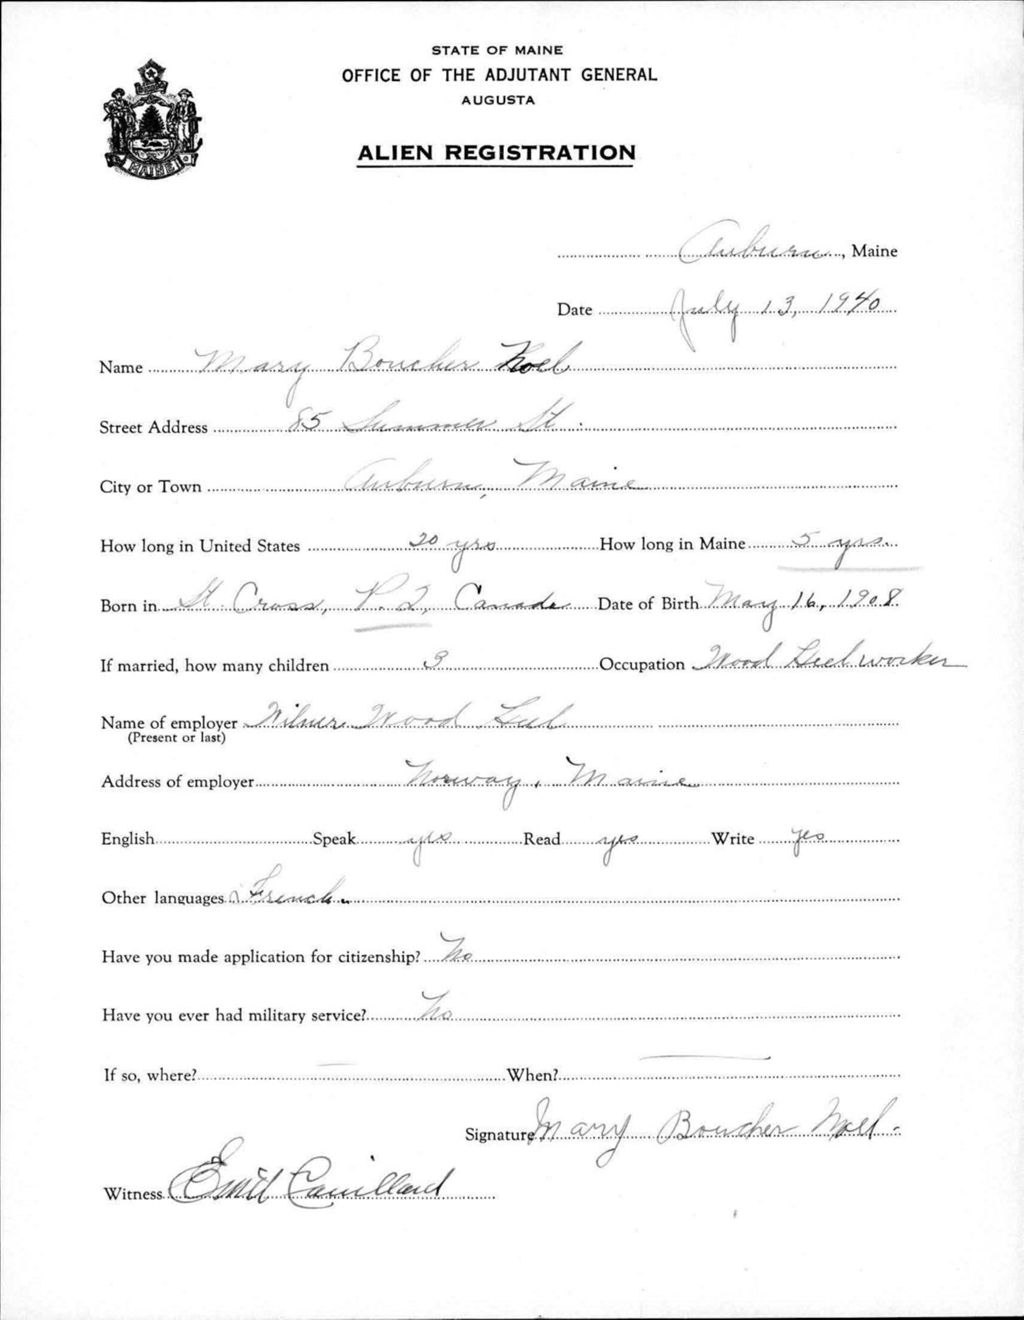 STATE OF MAINE
OFFICE OF THE ADJUTANT GENERAL
AUGUSTA
ALIEN REGISTRATION
MAINE
Auburn, Maine
Date July 13, 1940
Name Mary Boucher Noel
Street Address 85 Summer St.
City or Town Auburn, Maine
How long in United States 20 yrs How long in Maine 5 yrs.
Born in St. Cross, P.Q. Canada Date of Birth May 16, 1908
If married, how many children 3 Occupation Wood Heel worker
Name of employer Wilner Wood Heel
(Present or last)
Address of employer Norway, Maine
English Speak yes Read yes Write yes
Other languages French
Have you made application for citizenship? No
Have you ever had military service? No
If so, where? — When? —
Signature Mary Boucher Noel.
Witness Emil